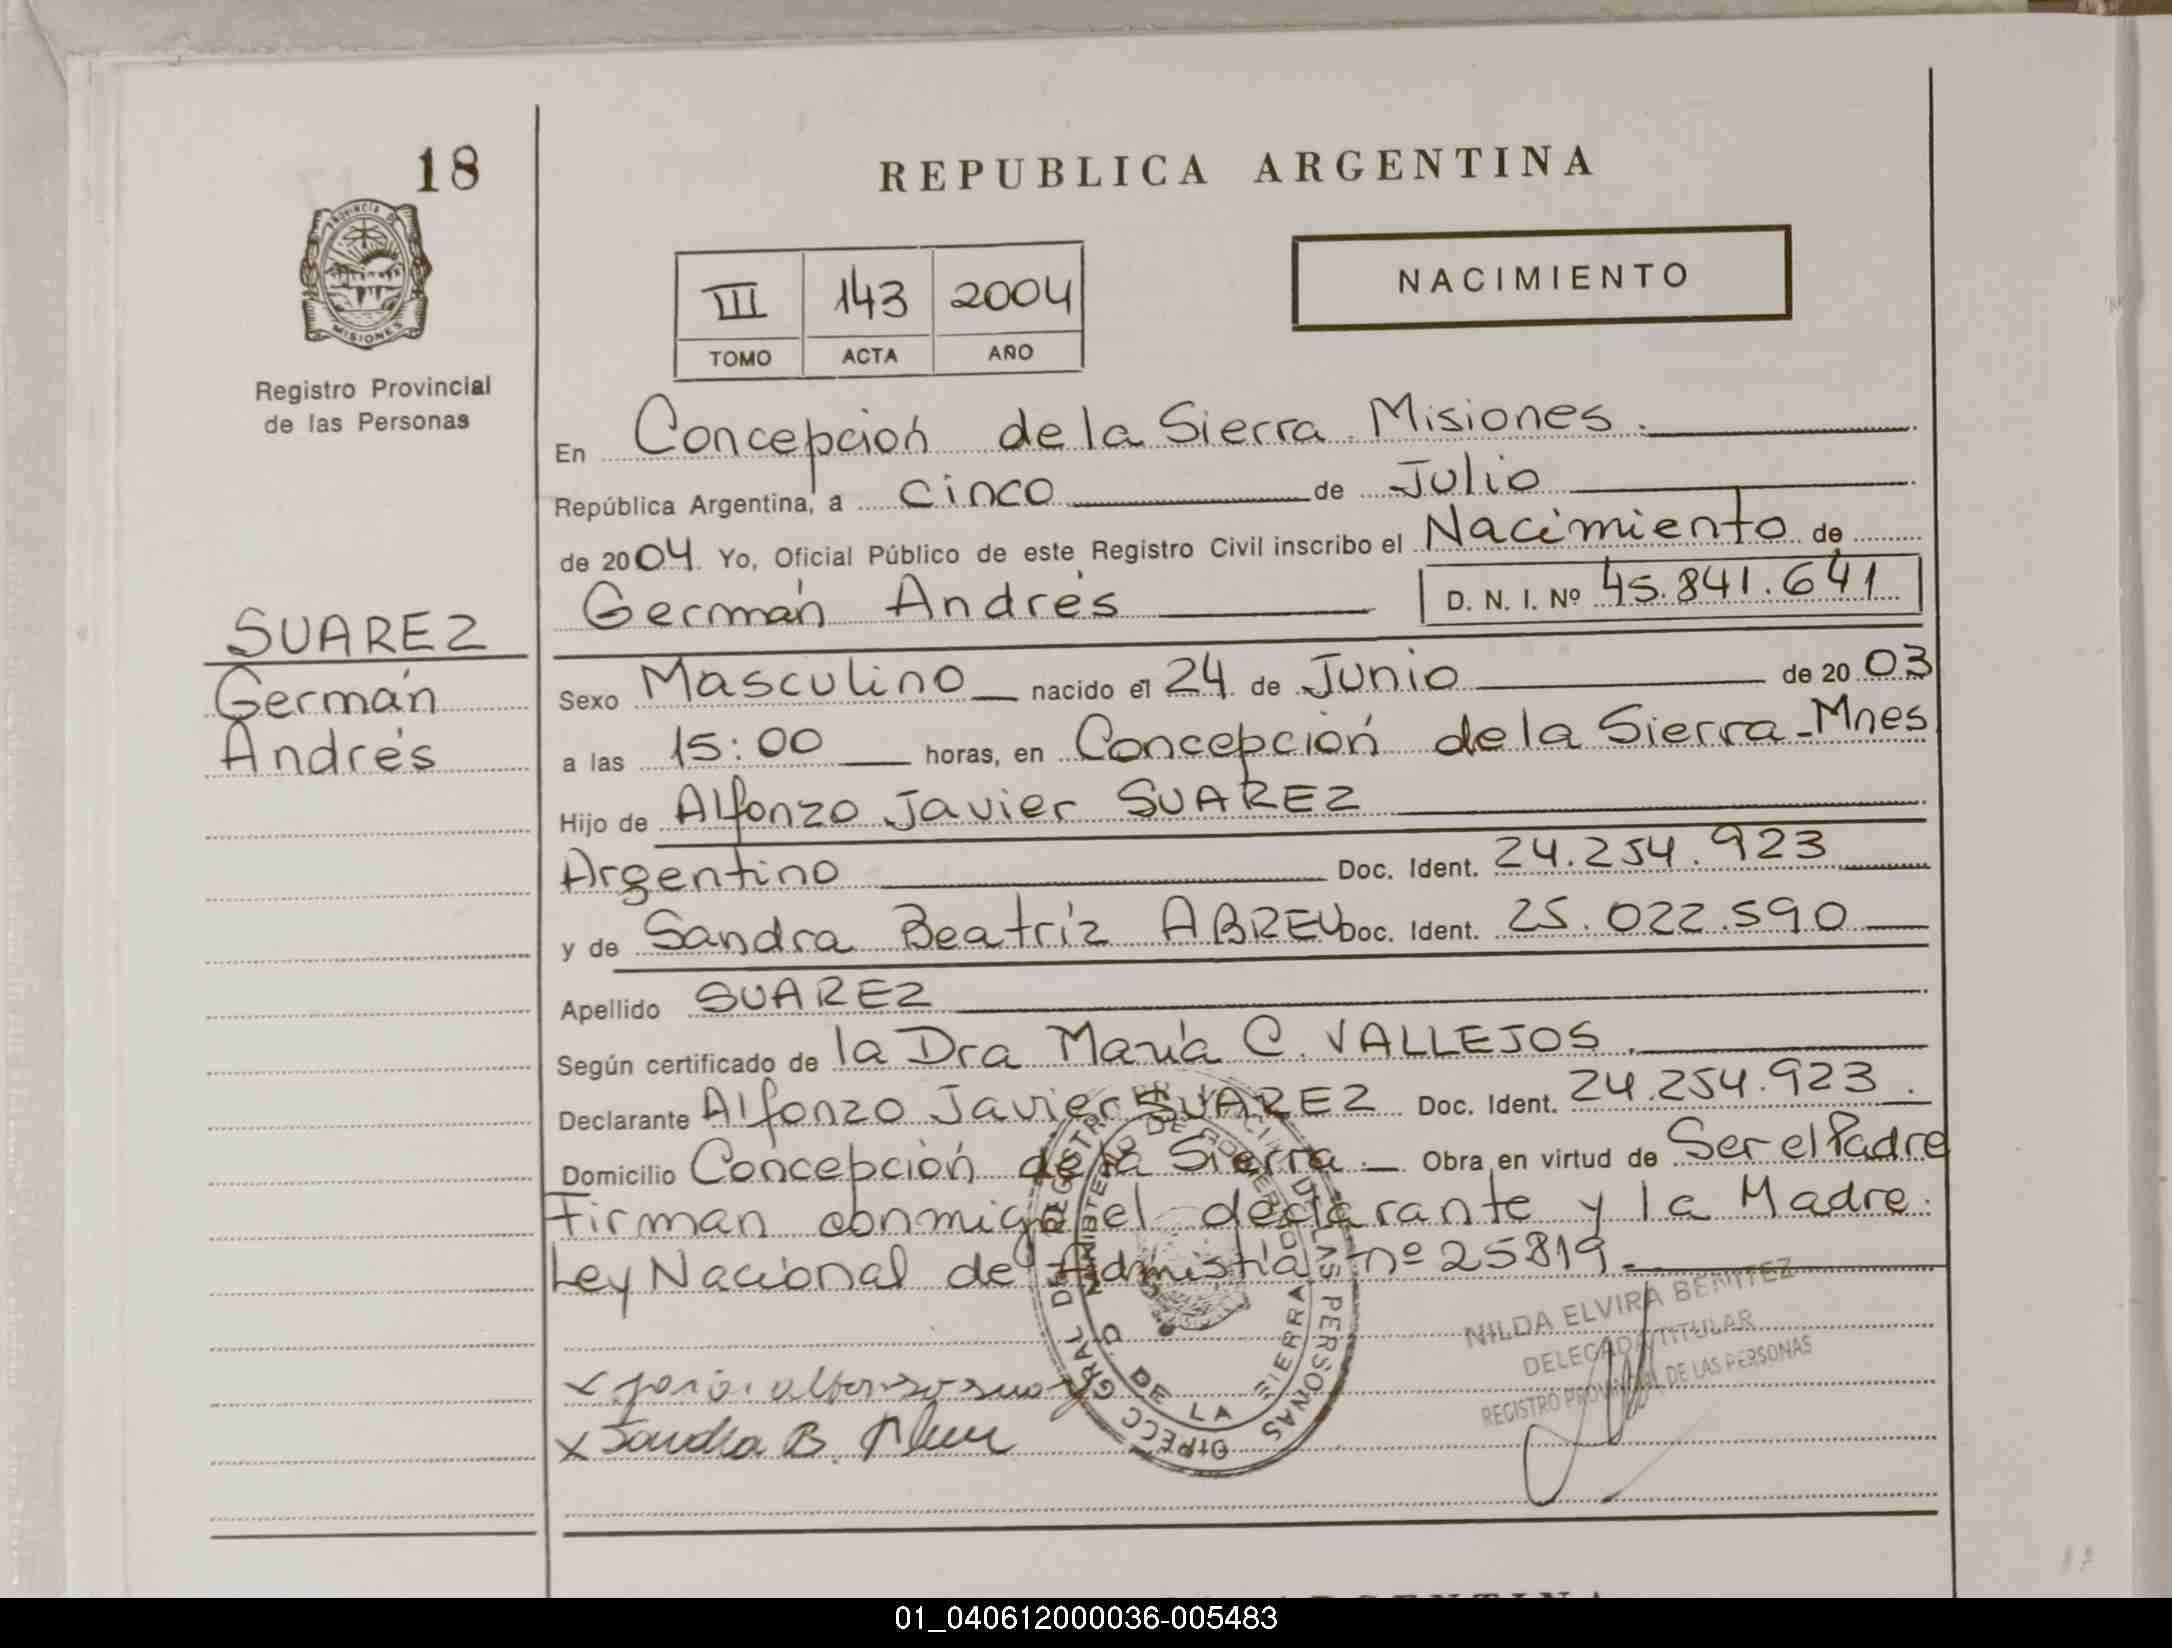 18
REPUBLICA ARGENTINA
PROVINCIA DE
MISIONES
Registro Provincial
de las Personas
III 143 2004
TOMO ACTA AÑO
NACIMIENTO
En Concepción de la Sierra Misiones.
República Argentina, a cinco de Julio
de 2004. Yo, Oficial Público de este Registro Civil inscribo el Nacimiento de
Germán Andrés D. N. I. Nº 45.841.641
SUAREZ
Germán
Andrés
Sexo Masculino nacido el 24 de Junio de 2003
a las 15:00 horas, en Concepción de la Sierra-Mnes
Hijo de Alfonzo Javier SUAREZ
Argentino Doc. Ident. 24.254.923
y de Sandra Beatríz ABREU Doc. Ident. 25.022.590
Apellido SUAREZ
Según certificado de la Dra María C. VALLEJOS.
Declarante Alfonzo Javier SUAREZ Doc. Ident. 24.254.923.
Domicilio Concepción de la Sierra Obra en virtud de Ser el Padre
Firman conmigo el declarante y la Madre.
Ley Nacional de Admistía nº 25819.
DIRECC GRAL DE REGISTRO DE LAS PERSONAS
MINISTERIO DE GOBIERNO
C. DE LA SIERRA
NILDA ELVIRA BENITEZ
DELEGADA TITULAR
REGISTRO PROVINCIAL DE LAS PERSONAS
x Sandra B. Abreu
01_040612000036-005483